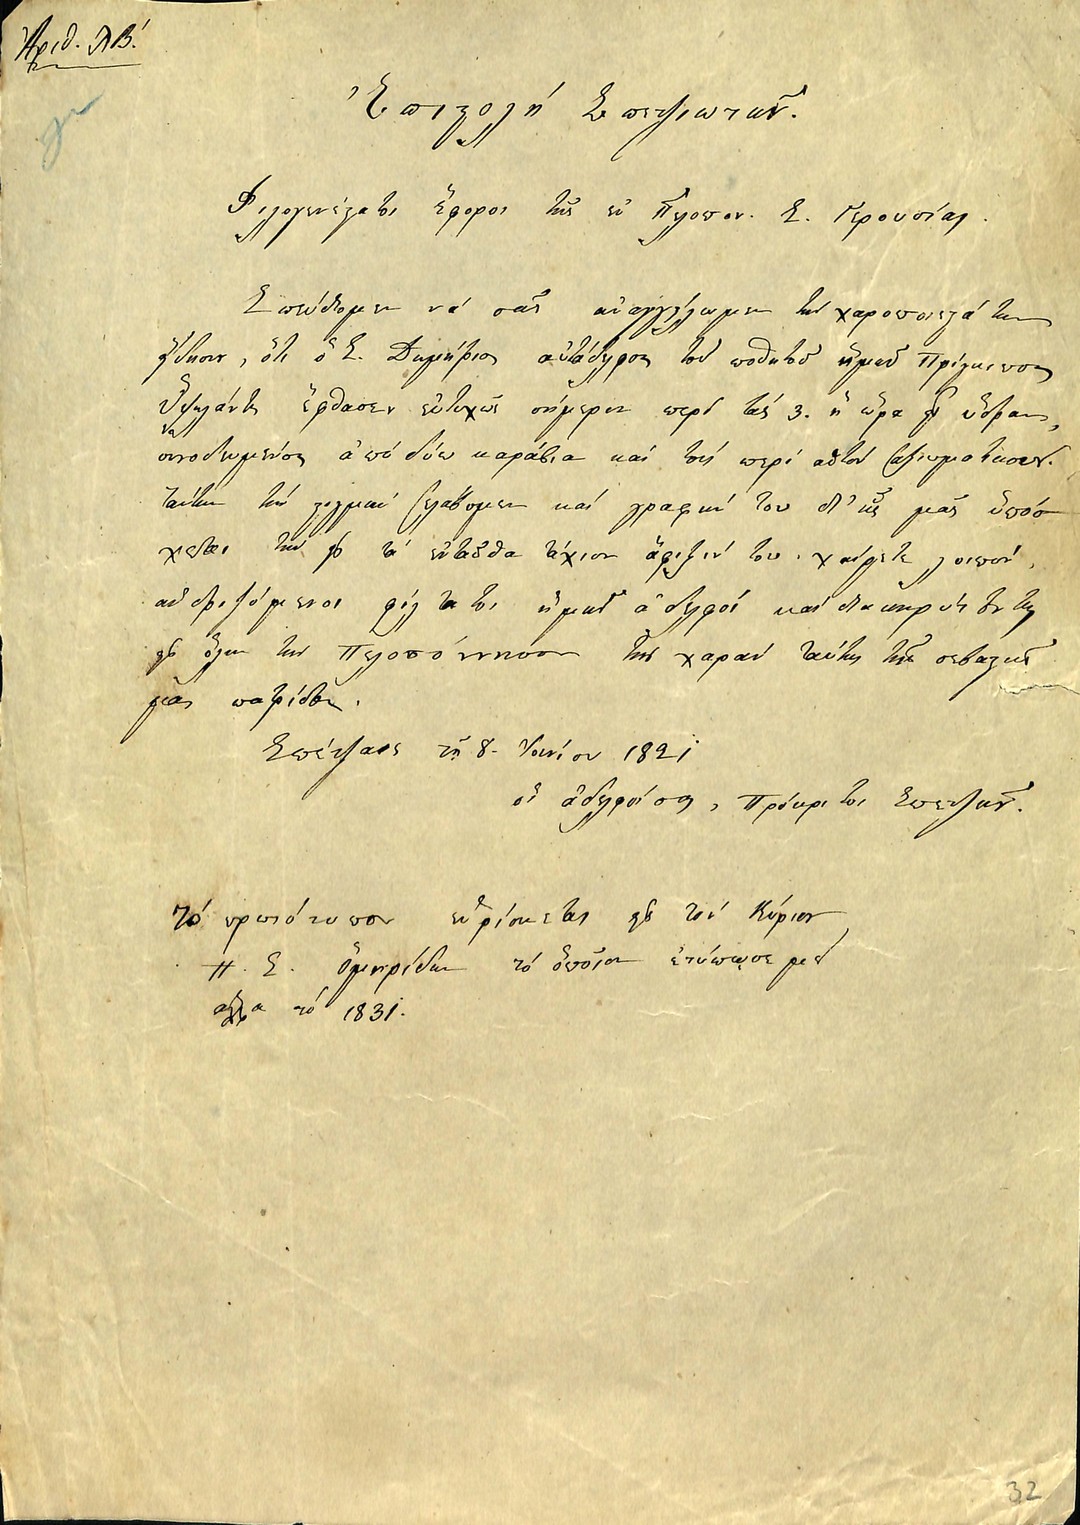 Ἀριθ. ΛΒ΄.
Ἐπιστολὴ Σπετζιωτῶν.
Φιλογενέστατοι ἔφοροι τῆς ἐν Πελοπον. Σ. Γερουσίας.
Σπεύδομεν νά σᾶς ἀναγγείλωμεν τὴν χαροποιεστάτην
εἴδησιν, ὅτι ὁ Σ. Δημήτριος αὐτάδελφος τοῦ ποθητοῦ ἡμῶν Πρίγκιπος
Ὑψηλάντη ἔφθασεν εὐτυχῶς σήμερον περὶ τὰς 3. ἡ ὥρα εἰς ὕδραν,
συνοδευμένος ἀπὸ δύω καράβια καὶ τοὺς περὶ αὐτὸν ἀξιωματικούς.
ταύτην τὴν στιγμὴν ἐλάβομεν καὶ γραφήν του δι' ἧς μᾶς ὑπόσ
χεται τὴν εἰς τὰ ἐνταῦθα τάχιον ἄφιξίν του. χαίρετε λοιπόν,
ἀνδριζόμενοι φίλτατοι ἡμῶν ἀδελφοί καὶ διακηρύττετε
εἰς ὅλην τὴν Πελοπόννησον τὴν χαρὰν ταύτην τῆς σεβαστῆς
μας πατρίδος.
Σπέτζαις τῇ 8. Ἰουνίου 1821
οἱ ἀδελφοί σας, Πρόκριτοι Σπετζῶν.
Τὸ πρωτότυπον εὑρίσκεται εἰς τὸν Κύριον
Π. Σ. Ὁμηρίδην τὸ ὁποῖον ἐτύπωσε μετ'
ἄλλα τὸ 1831.
32